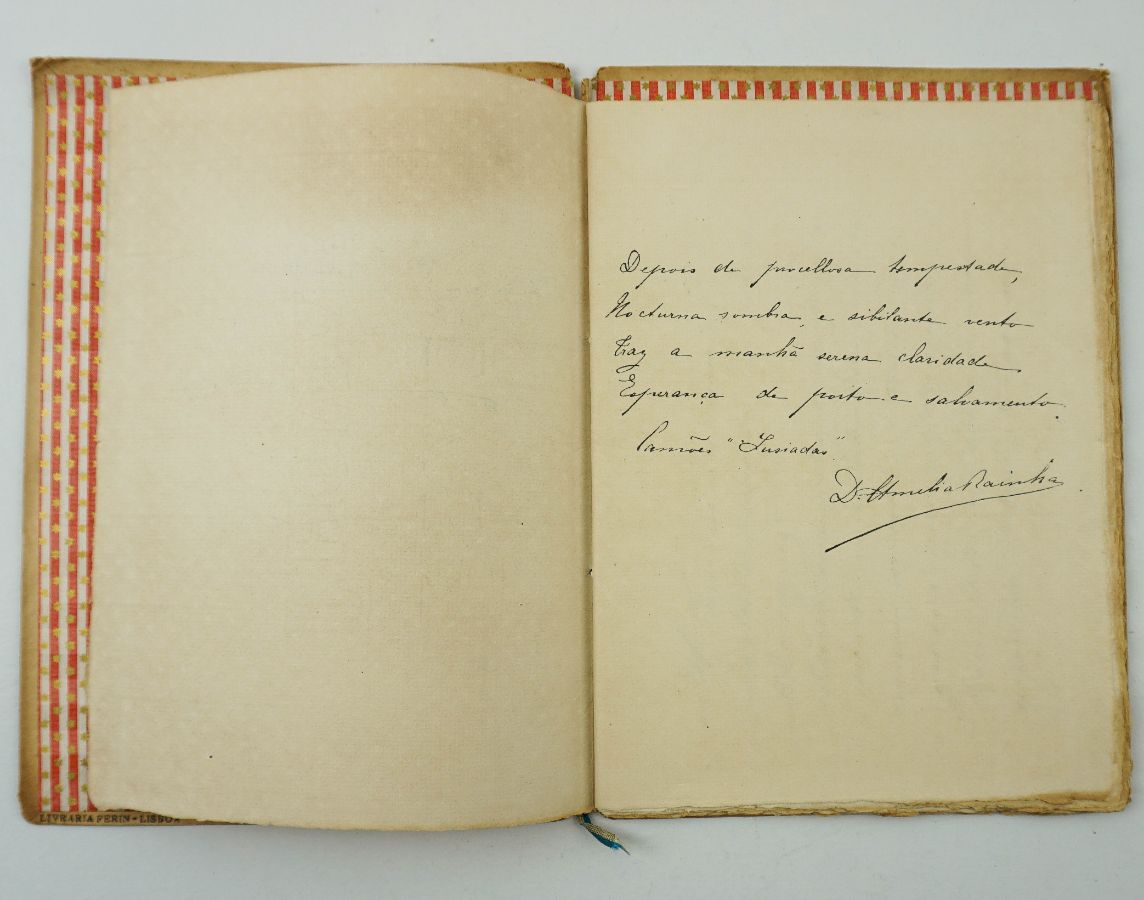 Depois de procellosa tempestade,
Nocturna sombra, e sibilante vento
Traz a manhã serena claridade,
Esperança de porto e salvamento.
Camões "Lusiadas"
D. Amelia Rainha
LIVRARIA FERIN - LISBOA